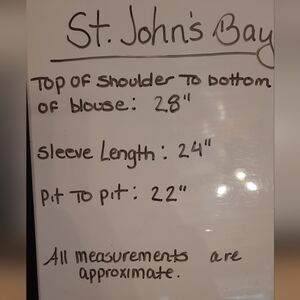 St. John's Bay
Top of Shoulder To bottom
of blouse: 28"
Sleeve Length: 24"
Pit To pit: 22"
All measurements are
approximate.